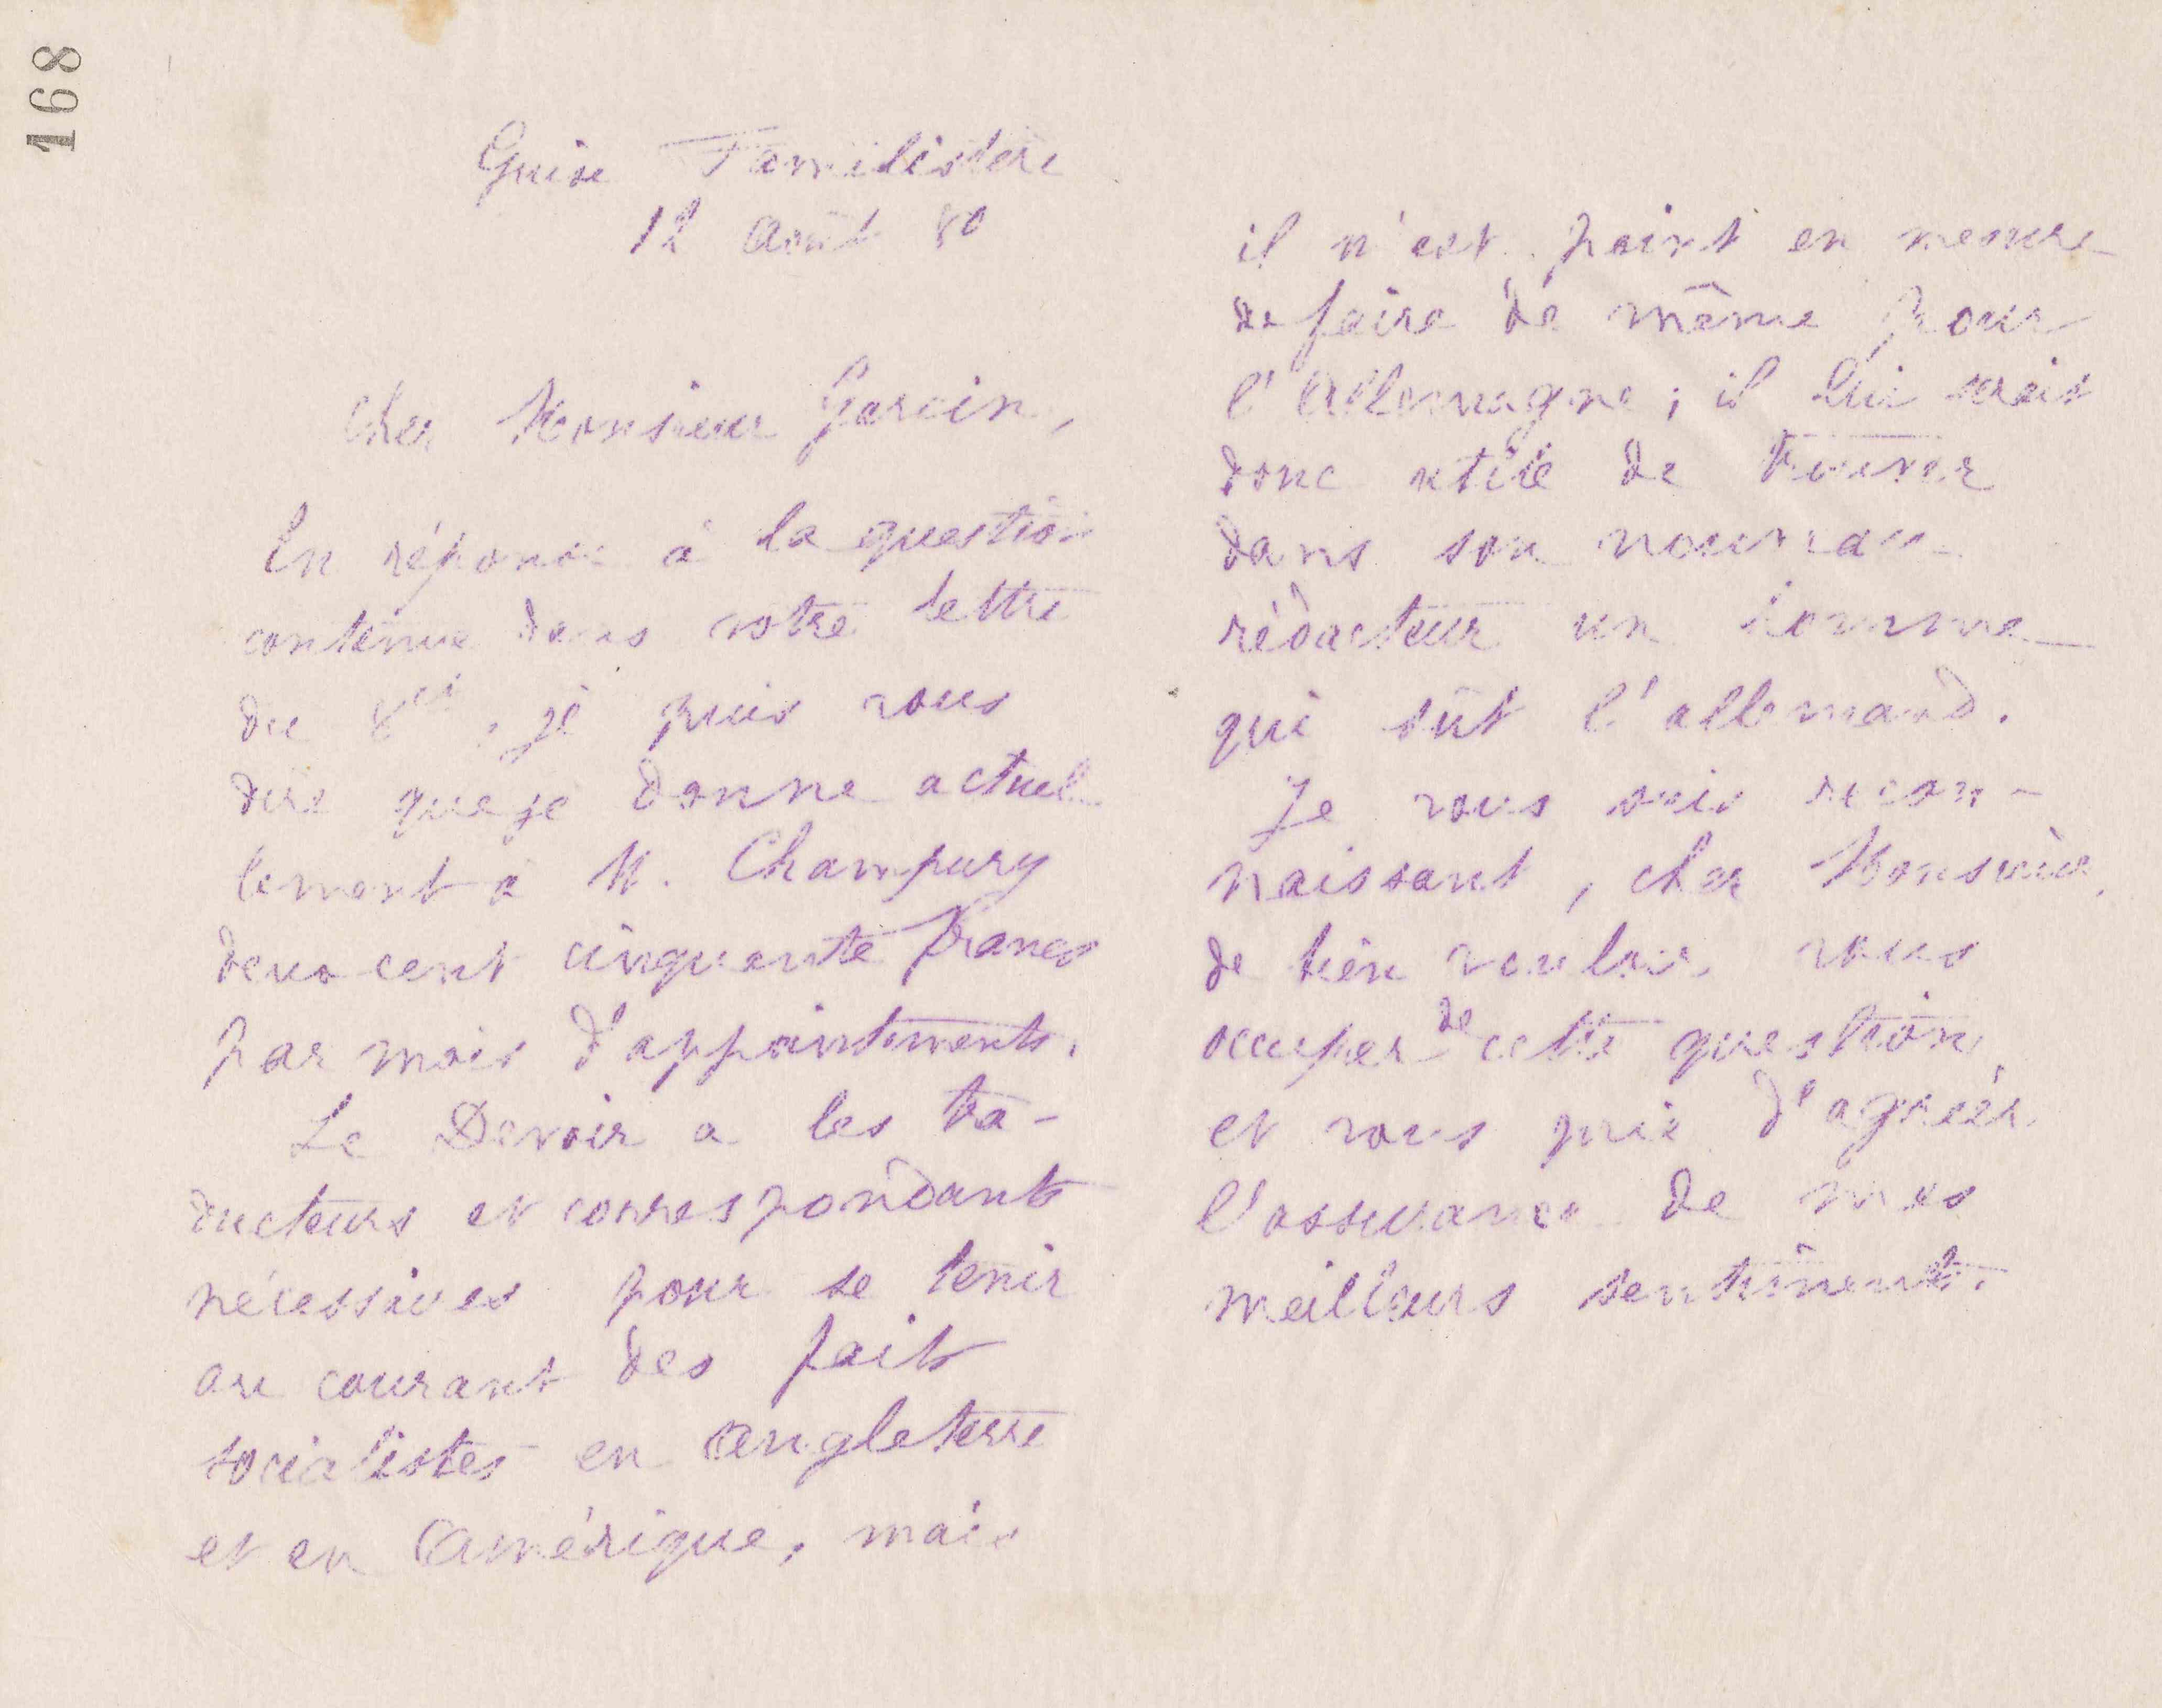 168
Guise Familistère
12 Août 80
Cher Monsieur Garcin,
En réponse à la question
contenue dans votre lettre
du 8 ct, je puis vous
dire que je donne actuel
lement à M. Champury
deux cent cinquante francs
par mois d'appointements.
Le Devoir a les tra-
ducteurs et correspondants
nécessaires pour se tenir
au courant des faits
socialistes en Angleterre
et en Amérique, mais
il n'est point en mesure
de faire de même pour
l'Allemagne; il lui serait
donc utile de trouver
dans son nouveau
rédacteur un homme
qui sût l'allemand.
Je vous suis recon-
naissant, cher Monsieur,
de bien vouloir vous
occuper de cette question
et vous prie d'agréer
l'assurance de mes
meilleurs sentiments.